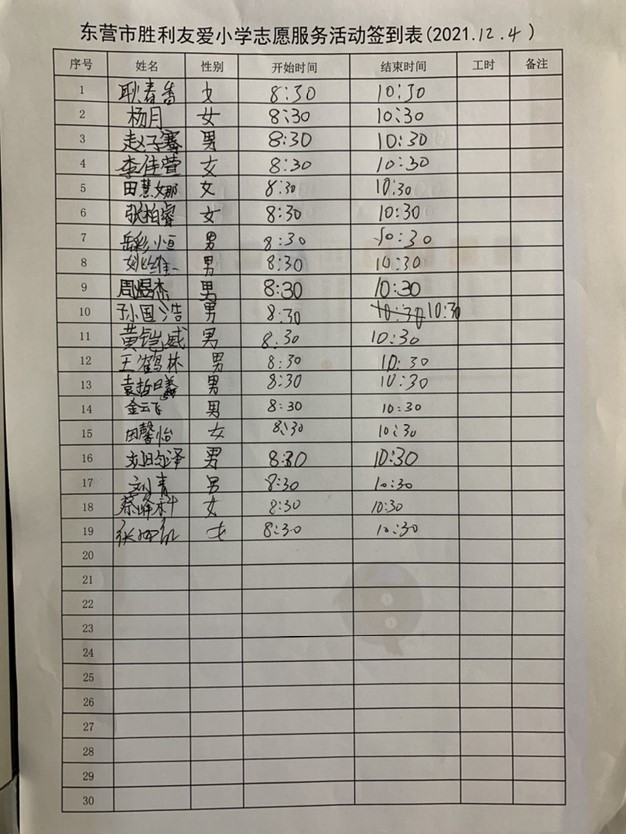 东营市胜利友爱小学志愿服务活动签到表(2021.12.4)
序号 姓名 性别 开始时间 结束时间 工时 备注
1 耿春香 女 8:30 10:30
2 杨月 女 8:30 10:30
3 赵子骞 男 8:30 10:30
4 李佳萱 女 8:30 10:30
5 田慧娜 女 8:30 10:30
6 张柏睿 女 8:30 10:30
7 岳彩恒 男 8:30 10:30
8 姚维一 男 8:30 10:30
9 周煜杰 男 8:30 10:30
10 孙国浩 男 8:30 10:30 10:30
11 黄铠威 男 8:30 10:30
12 王鹤林 男 8:30 10:30
13 袁哲曦 男 8:30 10:30
14 金云飞 男 8:30 10:30
15 田馨怡 女 8:30 10:30
16 男 8:30 10:30
17 刘青 男 8:30 10:30
18 女 8:30 10:30
19 张 女 8:30 10:30
20
21
22
23
24
25
26
27
28
29
30